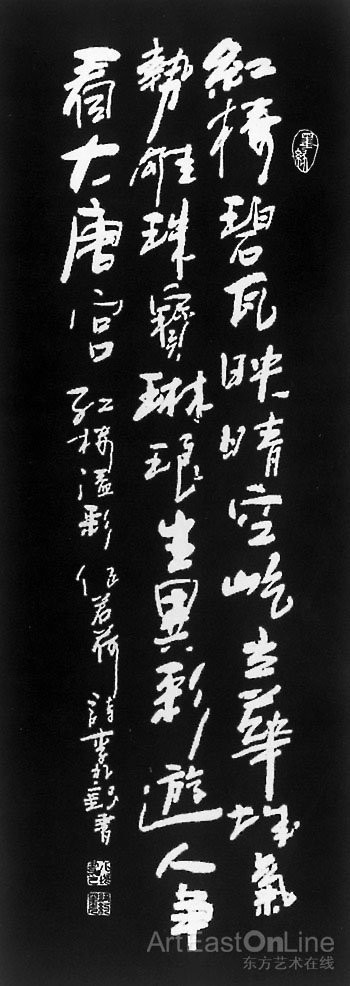 紅樓碧瓦映晴空屹立華城氣
勢雄珠寶琳琅生異彩遊人爭
看大唐宮 紅樓溢彩 若荷詩李書
Art EastOnLine
东方艺术在线